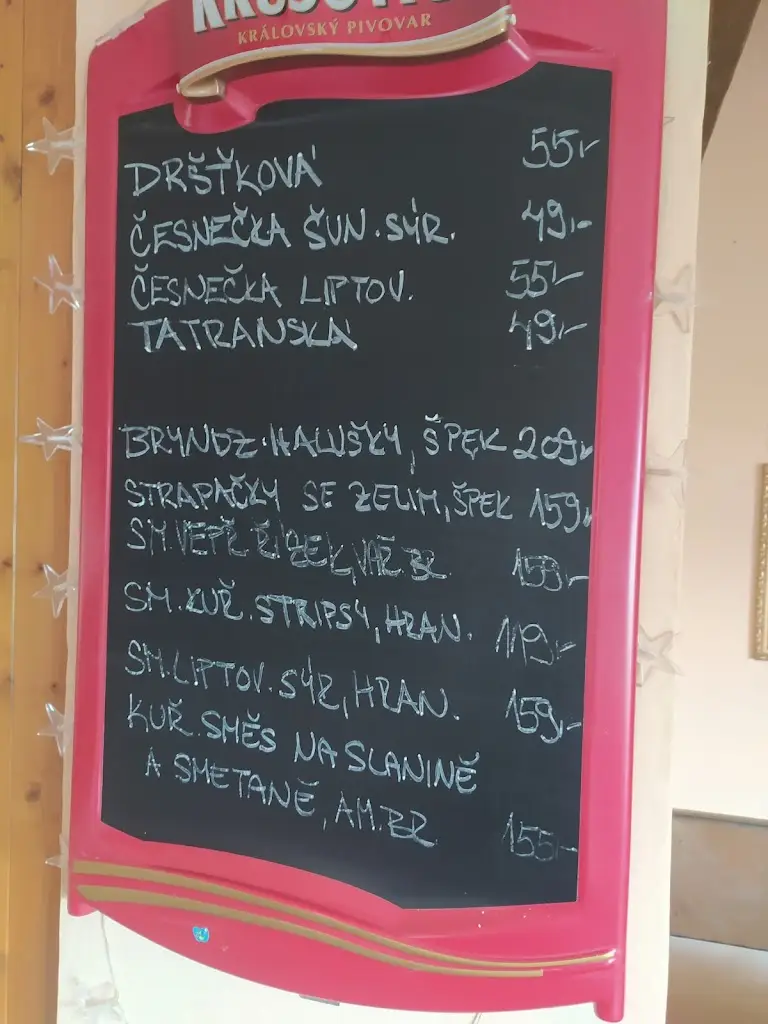 KRÁLOVSKÝ PIVOVAR
DRŠŤKOVÁ 55,-
ČESNEČKA ŠUN. SÝR. 49,-
ČESNEČKA LIPTOV. 55,-
TATRANSKÁ 49,-
BRYNDZ. HALUŠKY, ŠPEK 209,-
STRAPAČKY SE ZELIM, ŠPEK 159,-
SM. VEPŘ. ŘÍZEK, VAŘ. BR. 159,-
SM. KUŘ. STRIPSY, HRAN. 119,-
SM. LIPTOV. SÝR, HRAN. 159,-
KUŘ. SMĚS NA SLANINĚ
A SMETANĚ, AM. BR. 155,-